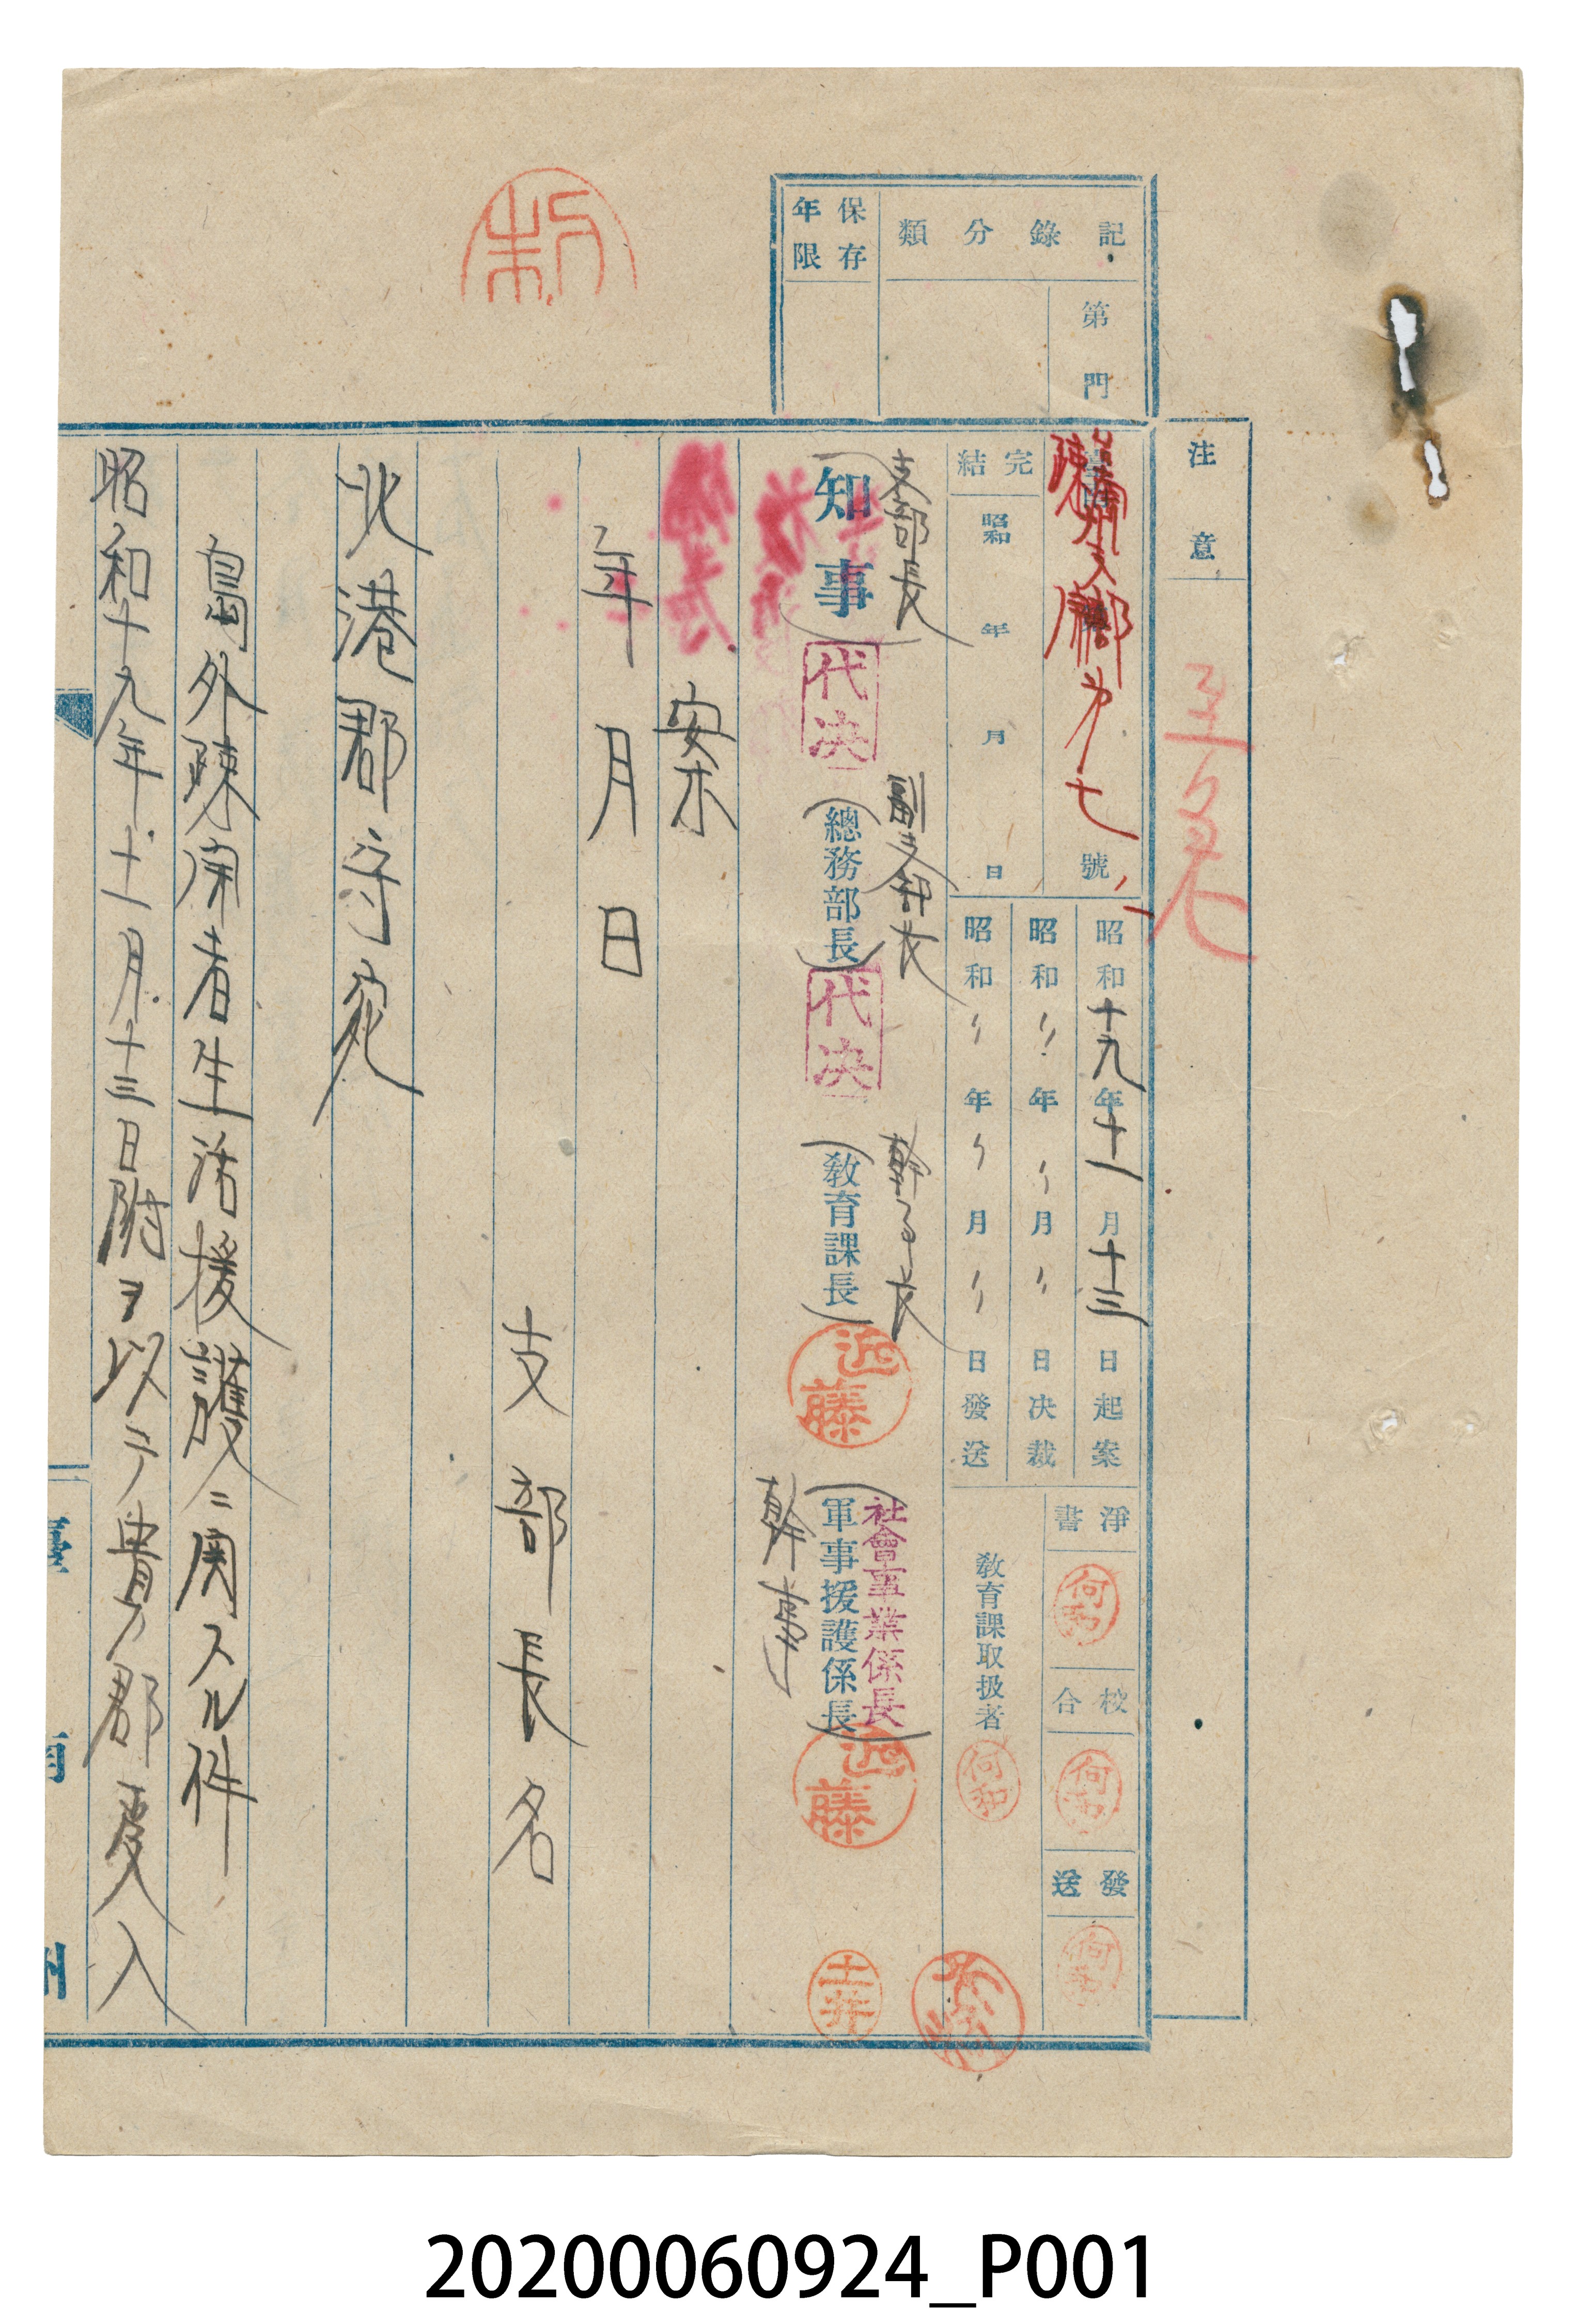 記錄分類
第門
保存年限
注意
至急
號
完結
昭和 年 月 日
昭和十九年十一月十三日起案
昭和〃年〃月〃日決裁
昭和〃年〃月〃日發送
淨書
校合
發送
教育課取扱者
支部長
知事
代決
副支部長
總務部長
代決
幹事長
教育課長
近藤
社會事業係長
軍事援護係長
近藤
幹事
土井
案
年月日
支部長名
北港郡守宛
島外疎開者生活援護ニ関スル件
昭和十九年十一月十三日附ヲ以テ貴郡受入
臺南州
20200060924_P001